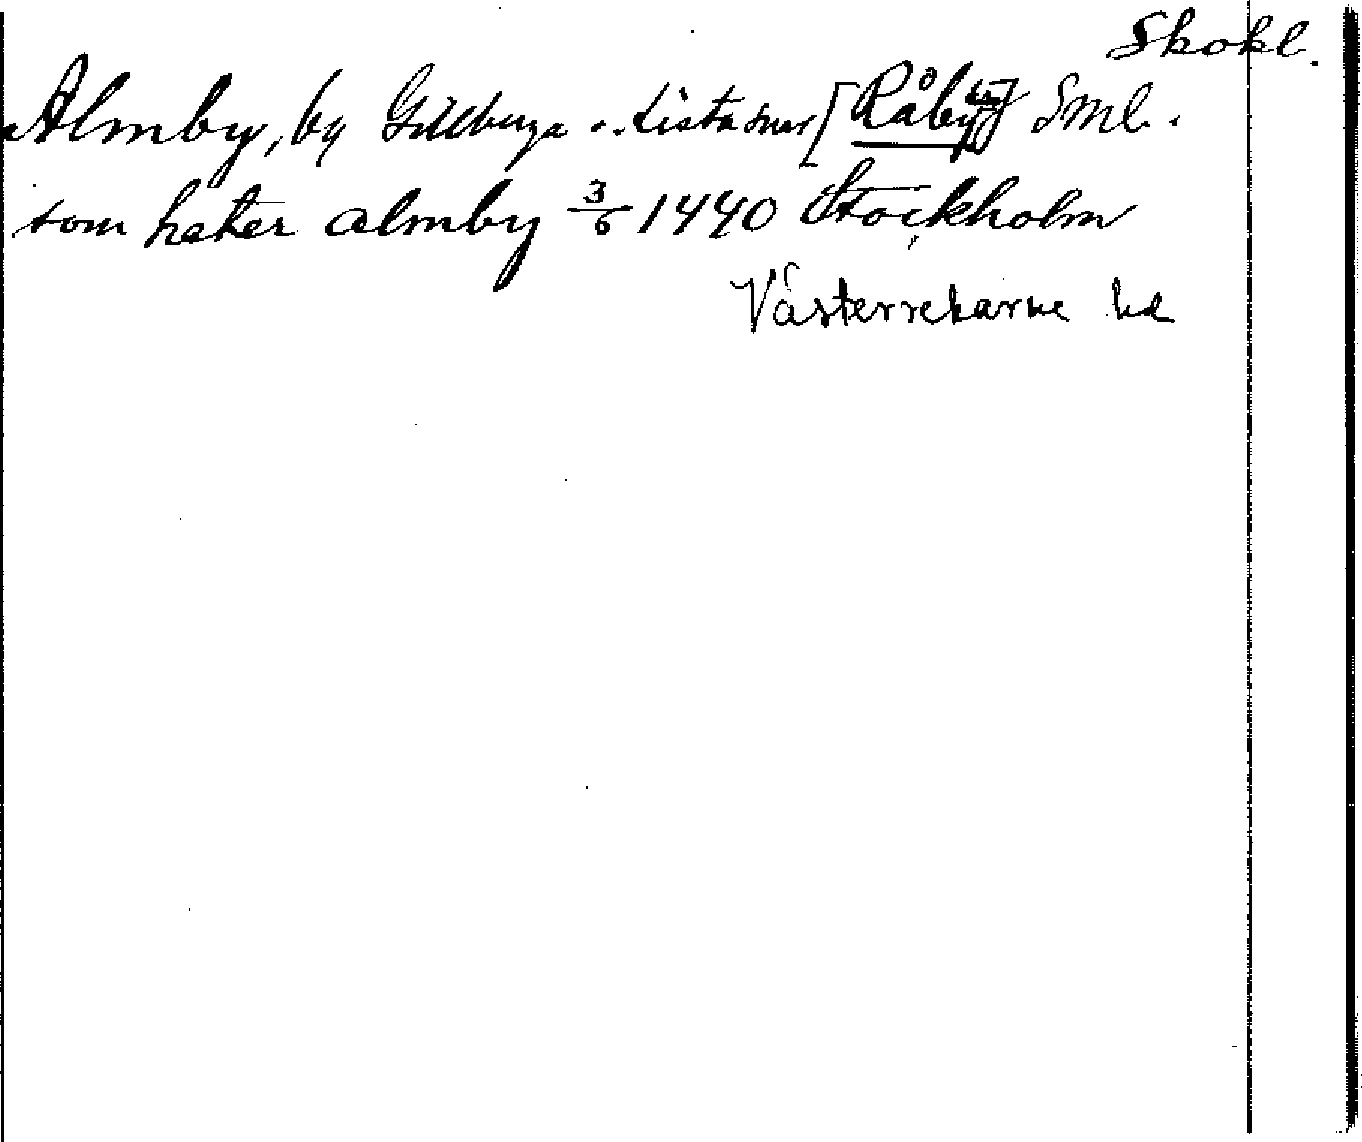 Skokl.
Almby, by Gillberga s. Lista snr [Råby] Sml.
som heter almby 3/6 1440 Stockholm
Västerrekarne hd